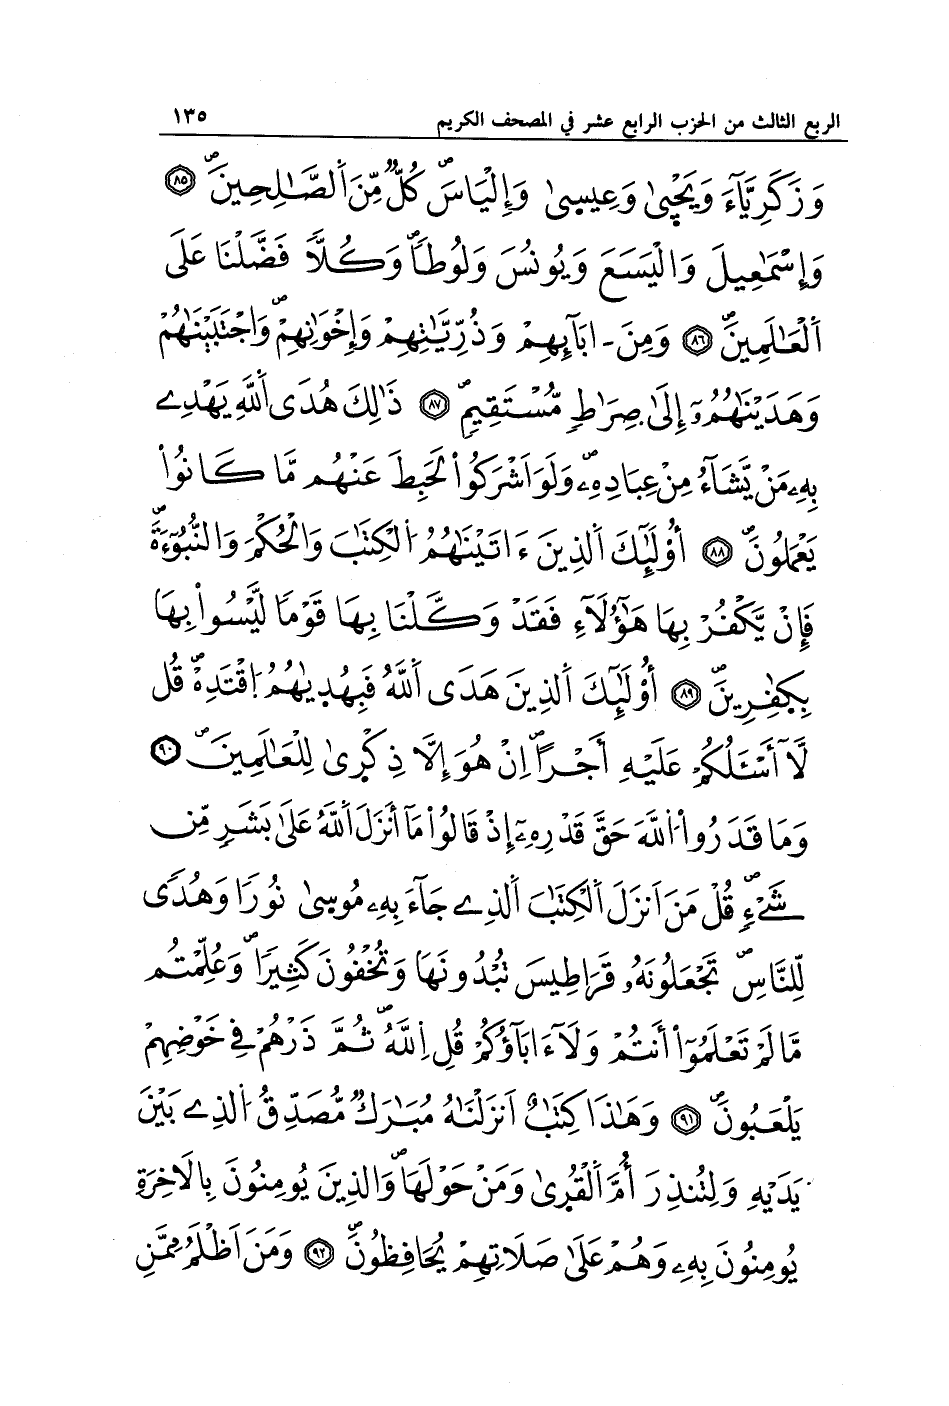 الربع الثالث من الحزب الرابع عشر في المصحف الكريم ١٣٥
وَزَكَرِيَّآءَ وَيَحْيٜىٰ وَعِيسٜىٰ وَإِلْيَاسَۖ كُلّٞ مِّنَ اَ۬لصَّٰلِحِينَۖ ٨٥
وَإِسْمَٰعِيلَ وَالْيَسَعَ وَيُونُسَ وَلُوطاٗۖ وَكُلّاٗ فَضَّلْنَا عَلَى
اَ۬لْعَٰلَمِينَۖ ٨٦ وَمِنَ ـ ابَآئِهِمْ وَذُرِّيَّٰتِهِمْ وَإِخْوَٰنِهِمْۖ وَاجْتَبَيْنَٰهُمْ
وَهَدَيْنَٰهُمُۥٓ إِلَىٰ صِرَٰطٖ مُّسْتَقِيمٖۖ ٨٧ ذَٰلِكَ هُدَى اَ۬للَّهِ يَهْدِے
بِهِۦ مَنْ يَّشَآءُ مِنْ عِبَادِهِۦۖ وَلَوَ اَشْرَكُواْ لَحَبِطَ عَنْهُم مَّا كَانُواْ
يَعْمَلُونَۖ ٨٨ أُوْلَٰٓئِكَ اَ۬لذِينَ ءَاتَيْنَٰهُمُ اُ۬لْكِتَٰبَ وَالْحُكْمَ وَالنُّبُوٓءَةَۖ
فَإِنْ يَّكْفُرْ بِهَا هَٰٓؤُلَآءِ فَقَدْ وَكَّلْنَا بِهَا قَوْماٗ لَّيْسُواْ بِهَا
بِكَٰفِرِينَۖ ٨٩ أُوْلَٰٓئِكَ اَ۬لذِينَ هَدَى اَ۬للَّهُ فَبِهُدٜيٰهُمُ اُ۪قْتَدِهْۖ قُل
لَّآ أَسْـَٔلُكُمْ عَلَيْهِ أَجْراًۖ اِنْ هُوَ إِلَّا ذِكْرٜىٰ لِلْعَٰلَمِينَۖ ٩٠
وَمَا قَدَرُواْ اُ۬للَّهَ حَقَّ قَدْرِهِۦٓ إِذْ قَالُواْ مَآ أَنزَلَ اَ۬للَّهُ عَلَىٰ بَشَرٖ مِّن
شَےْءٖۖ قُلْ مَنَ اَنزَلَ اَ۬لْكِتَٰبَ اَ۬لذِے جَآءَ بِهِۦ مُوسٜىٰ نُوراٗ وَهُدىٗ
لِّلنَّاسِۖ تَجْعَلُونَهُۥ قَرَاطِيسَ تُبْدُونَهَا وَتُخْفُونَ كَثِيراٗۖ وَعُلِّمْتُم
مَّا لَمْ تَعْلَمُوٓاْ أَنتُمْ وَلَآ ءَابَآؤُكُمْ قُلِ اِ۬للَّهُۖ ثُمَّ ذَرْهُمْ فِي خَوْضِهِمْ
يَلْعَبُونَۖ ٩١ وَهَٰذَا كِتَٰبٌ اَنزَلْنَٰهُ مُبَٰرَكٞ مُّصَدِّقُ اُ۬لذِے بَيْنَ
يَدَيْهِ وَلِتُنذِرَ أُمَّ اَ۬لْقُرٜىٰ وَمَنْ حَوْلَهَاۖ وَالذِينَ يُومِنُونَ بِالَاخِرَةِ
يُومِنُونَ بِهِۦ وَهُمْ عَلَىٰ صَلَاتِهِمْ يُحَافِظُونَۖ ٩٢ وَمَنَ اَظْلَمُ مِمَّنِ